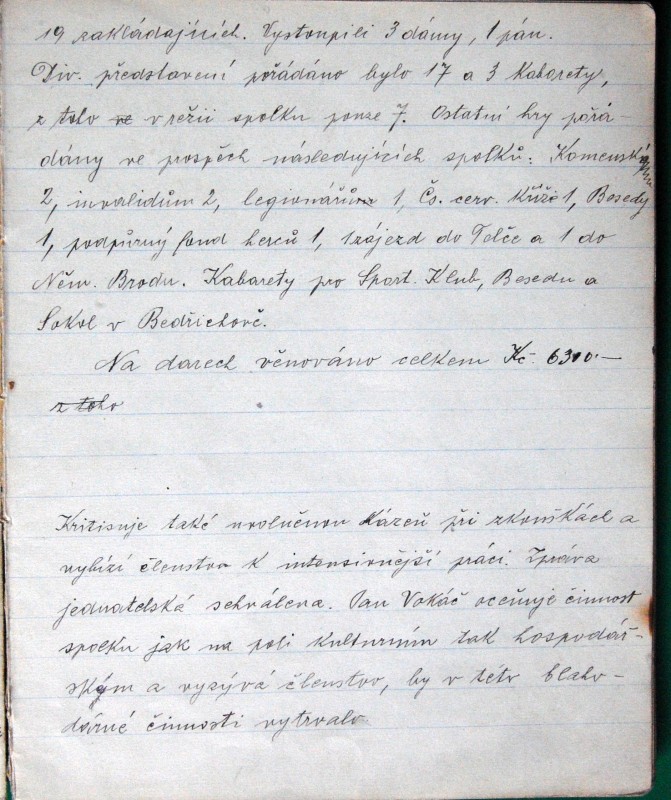 19 zakládajících. Vystoupili 3 dámy, 1 pán.
Div. představení pořádáno bylo 17 a 3 Kabarety,
z toho ve v režii spolku pouze 7. Ostatní hry pořá-
dány ve prospěch následujících spolků: Komenský
2, invalidům 2, legionářům 1, Čs. červ. Kříže 1, Besedy
1, podpůrný fond herců 1, 1 zájezd do Telče a 1 do
Něm. Brodu. Kabarety pro Sport. Klub, Besedu a
Sokol v Bedřichově.
Na darech věnováno celkem Kč 6310.—
z toho
Kritisuje také uvolněnou kázeň při zkouškách a
vybízí členstvo k intensivnější práci. Zpráva
jednatelská schválena. Pan Vokáč oceňuje činnost
spolku jak na poli kulturním tak hospodář-
ským a vyzývá členstvo, by v této blaho-
dárné činnosti vytrvalo.